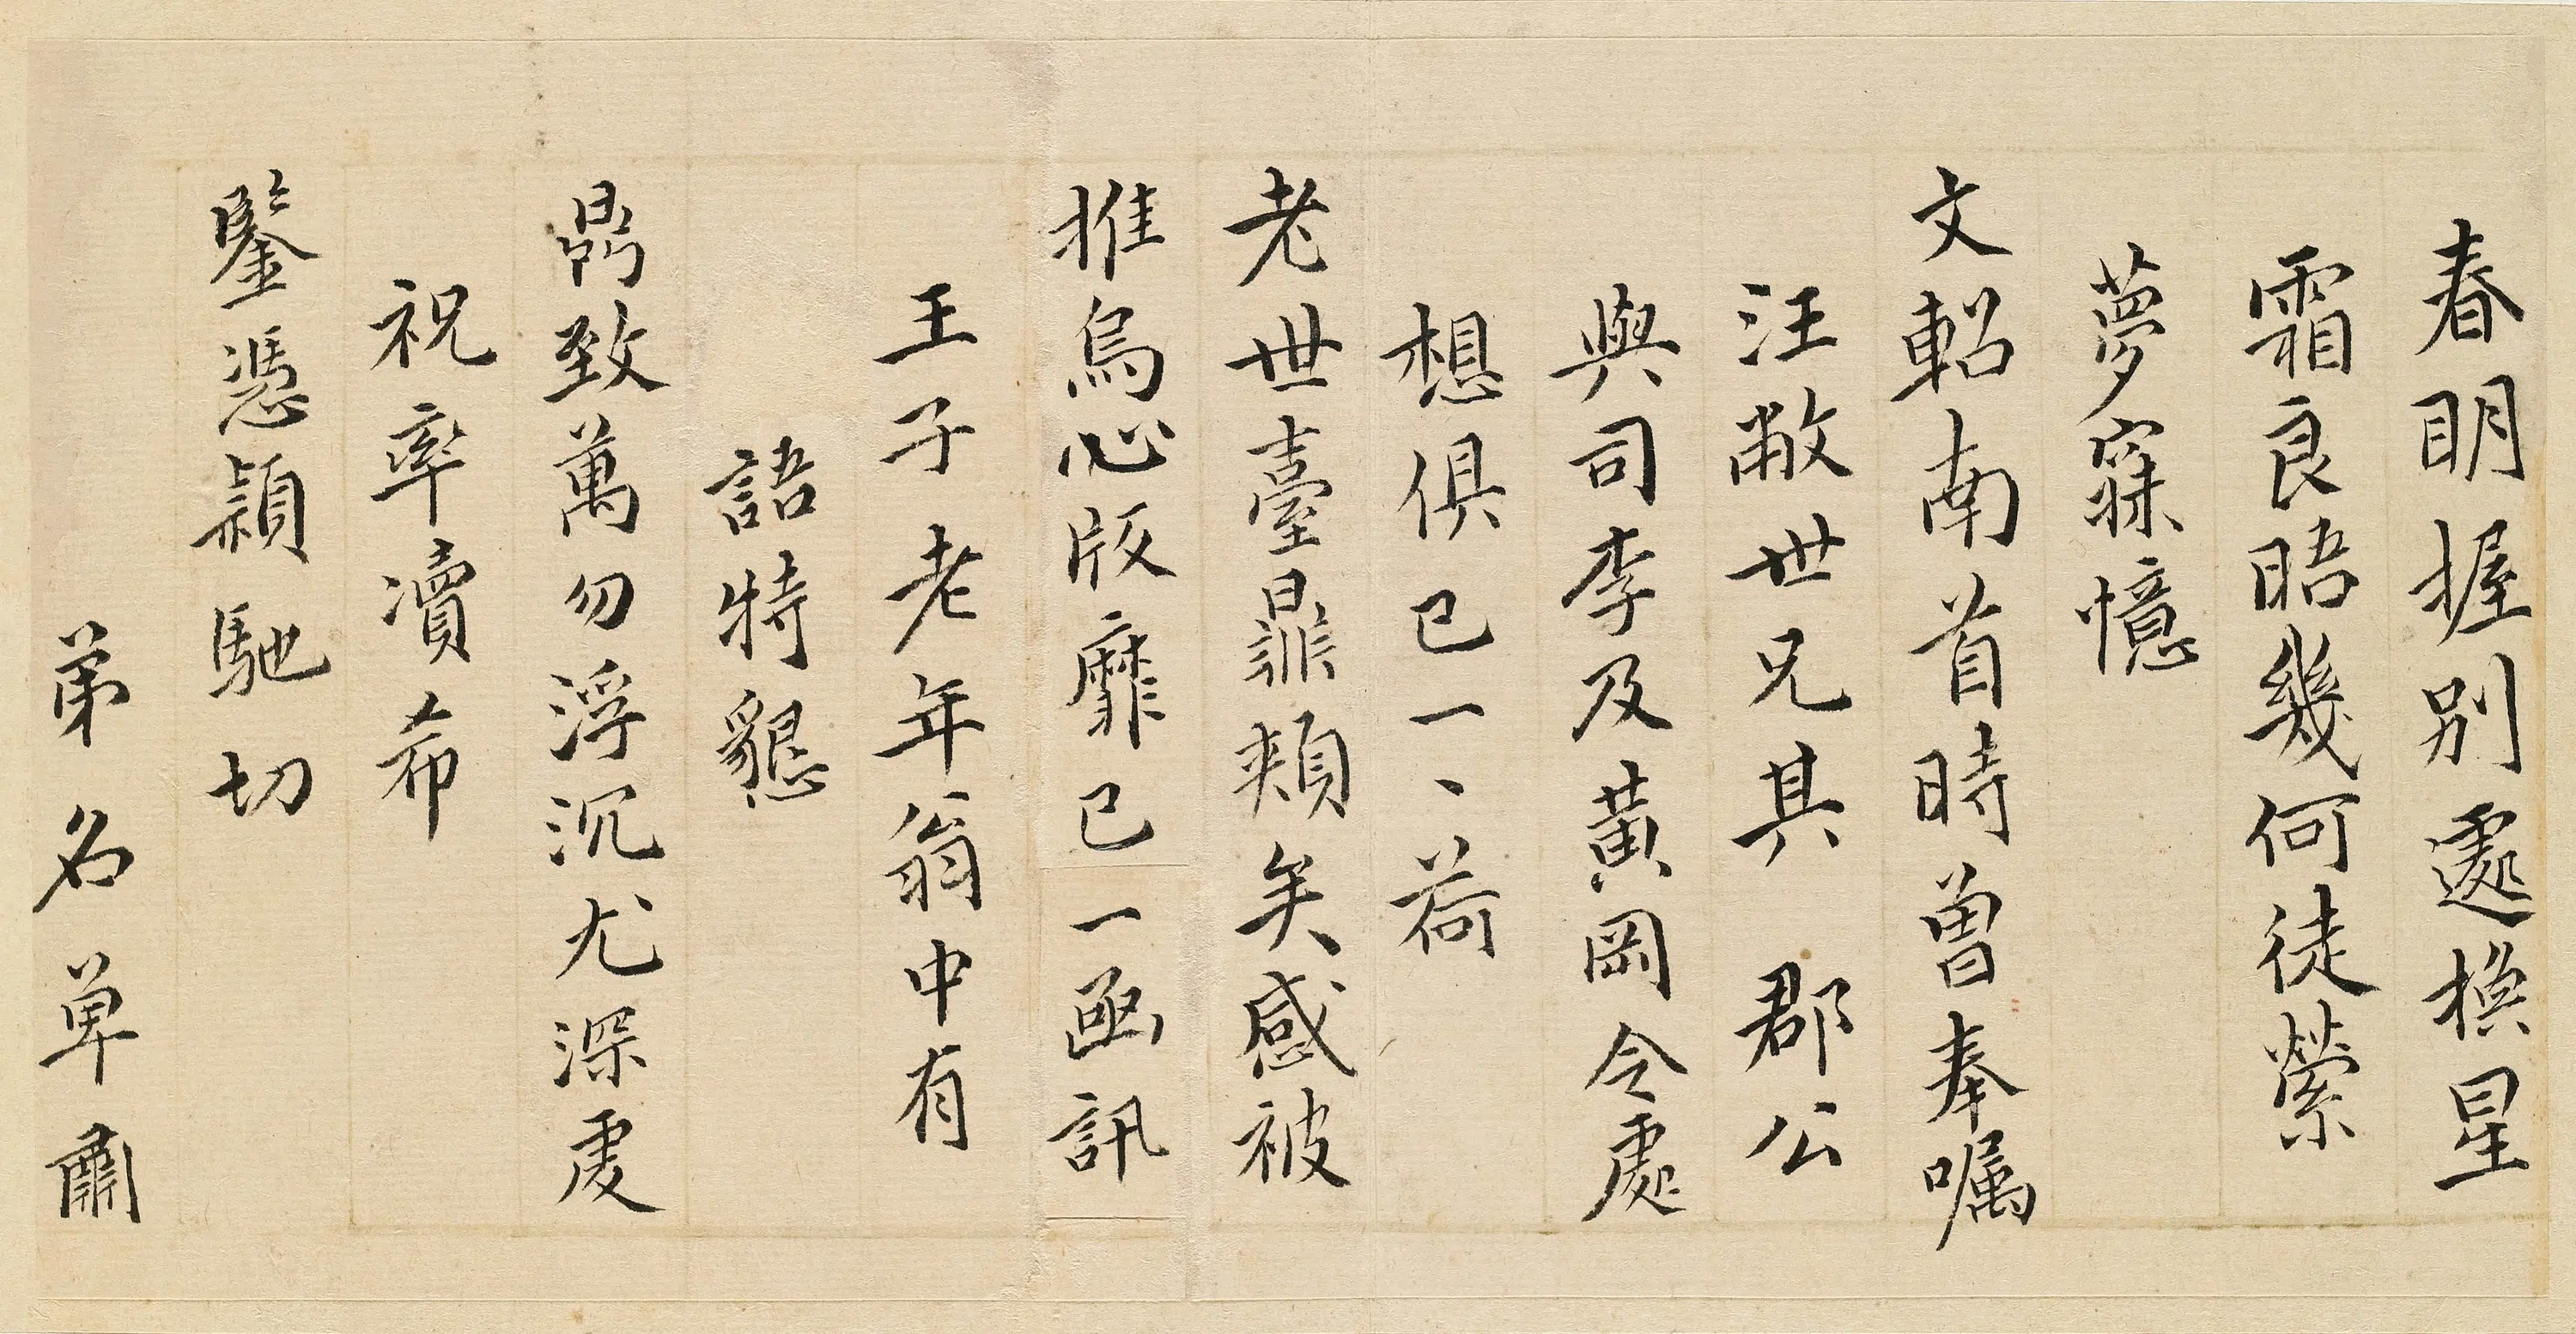 春明握別遽換星
霜良晤幾何徒縈
夢寐憶
文軺南首時曾奉囑
汪敝世兄其 郡公
與司李及黃岡令處
想俱已一、荷
老世臺鼎頰矣感被
推烏心版靡已一函訊
王子老年翁中有
語特懇
鼎致萬勿浮沉尤深虔
祝率瀆希
鑒憑穎馳切
弟名單肅